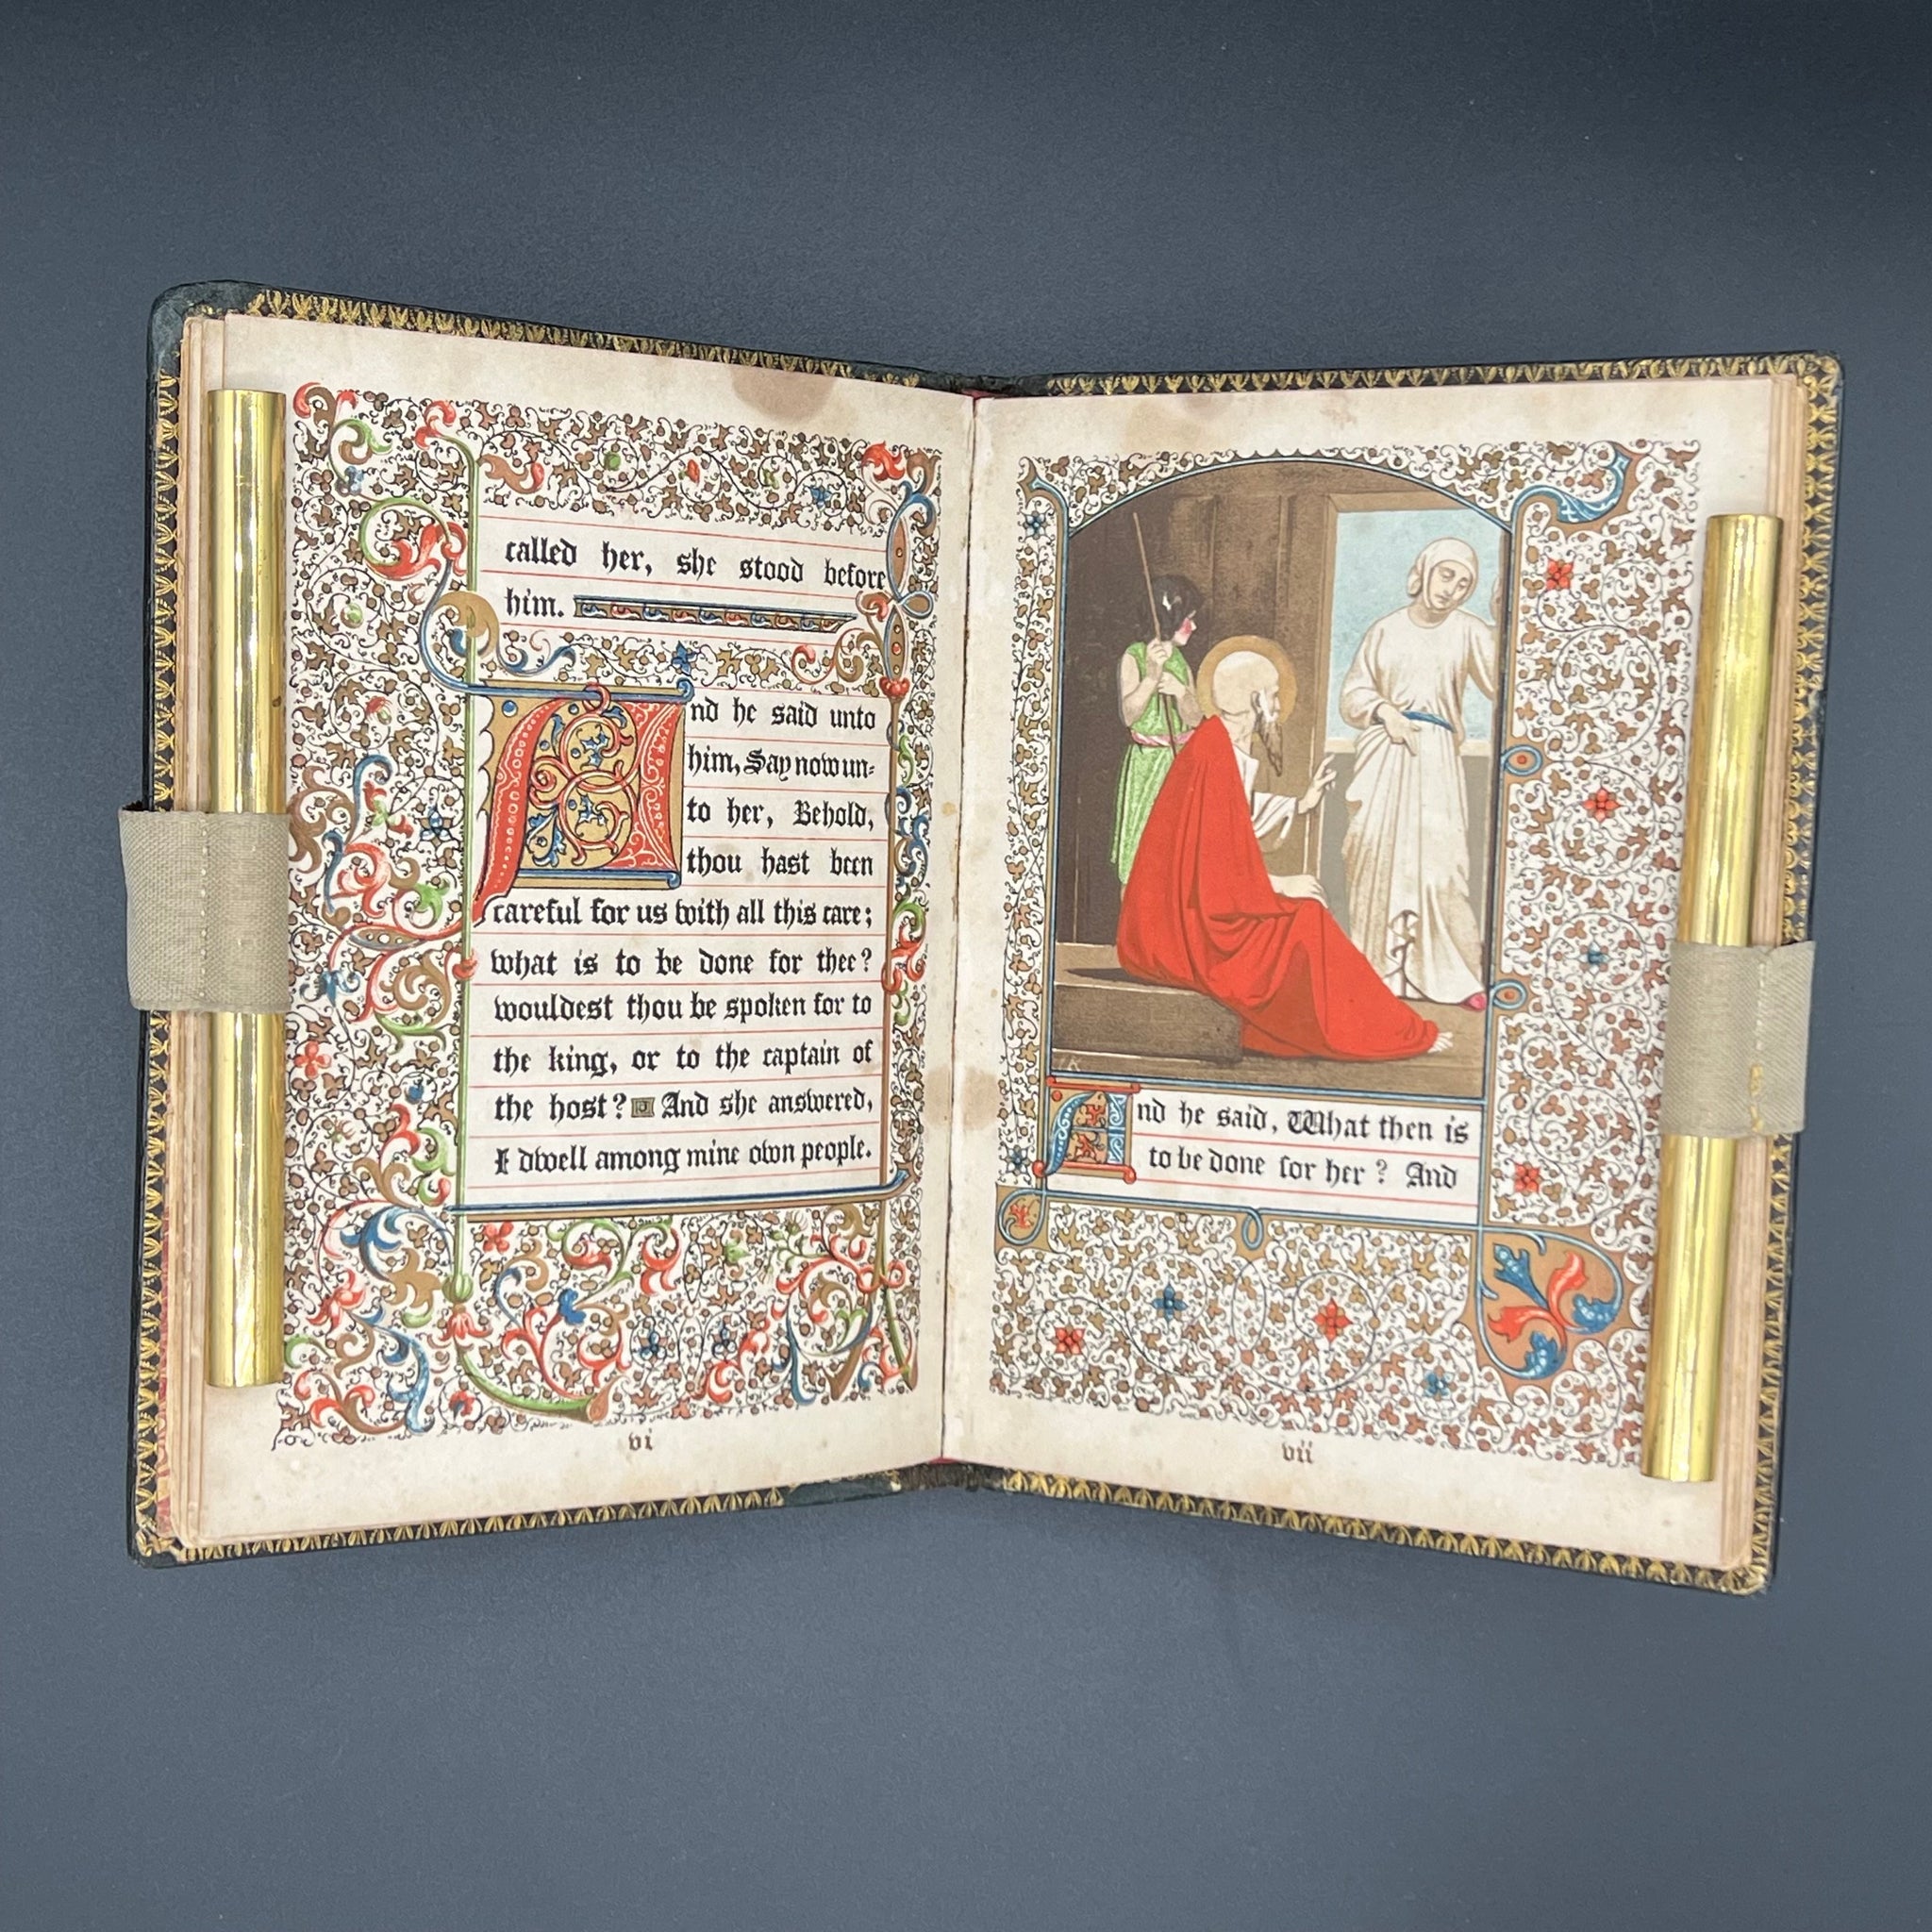 called her, she stood before
him.
And he said unto
him, Say now un=
to her, Behold,
thou hast been
careful for us with all this care;
what is to be done for thee?
wouldest thou be spoken for to
the king, or to the captain of
the host? And she answered,
I dwell among mine own people.
vi
And he said, What then is
to be done for her? And
vii